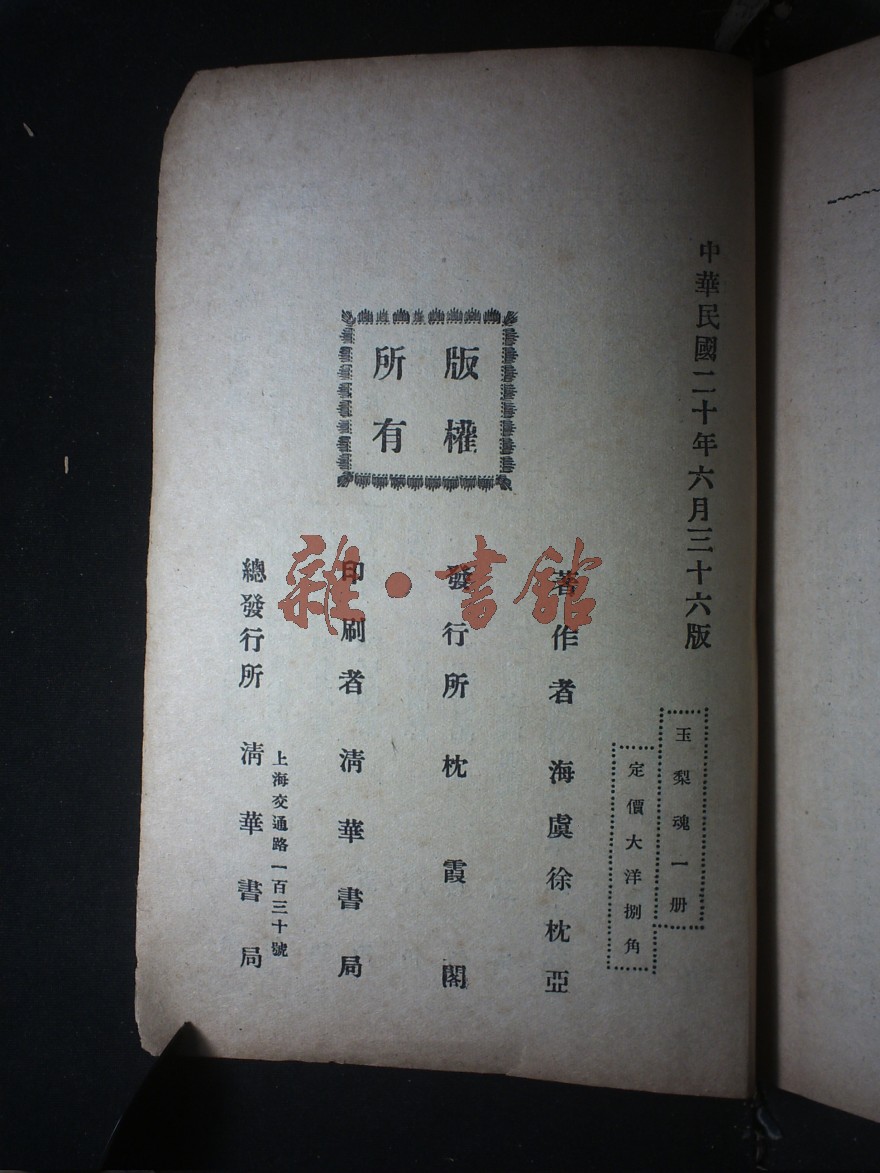 中華民國二十年六月三十六版
玉梨魂一册
定價大洋捌角
版權
所有
著作者 海虞徐枕亞
發行所 枕霞閣
印刷者 清華書局
上海交通路一百三十號
總發行所 清華書局
雜·書館